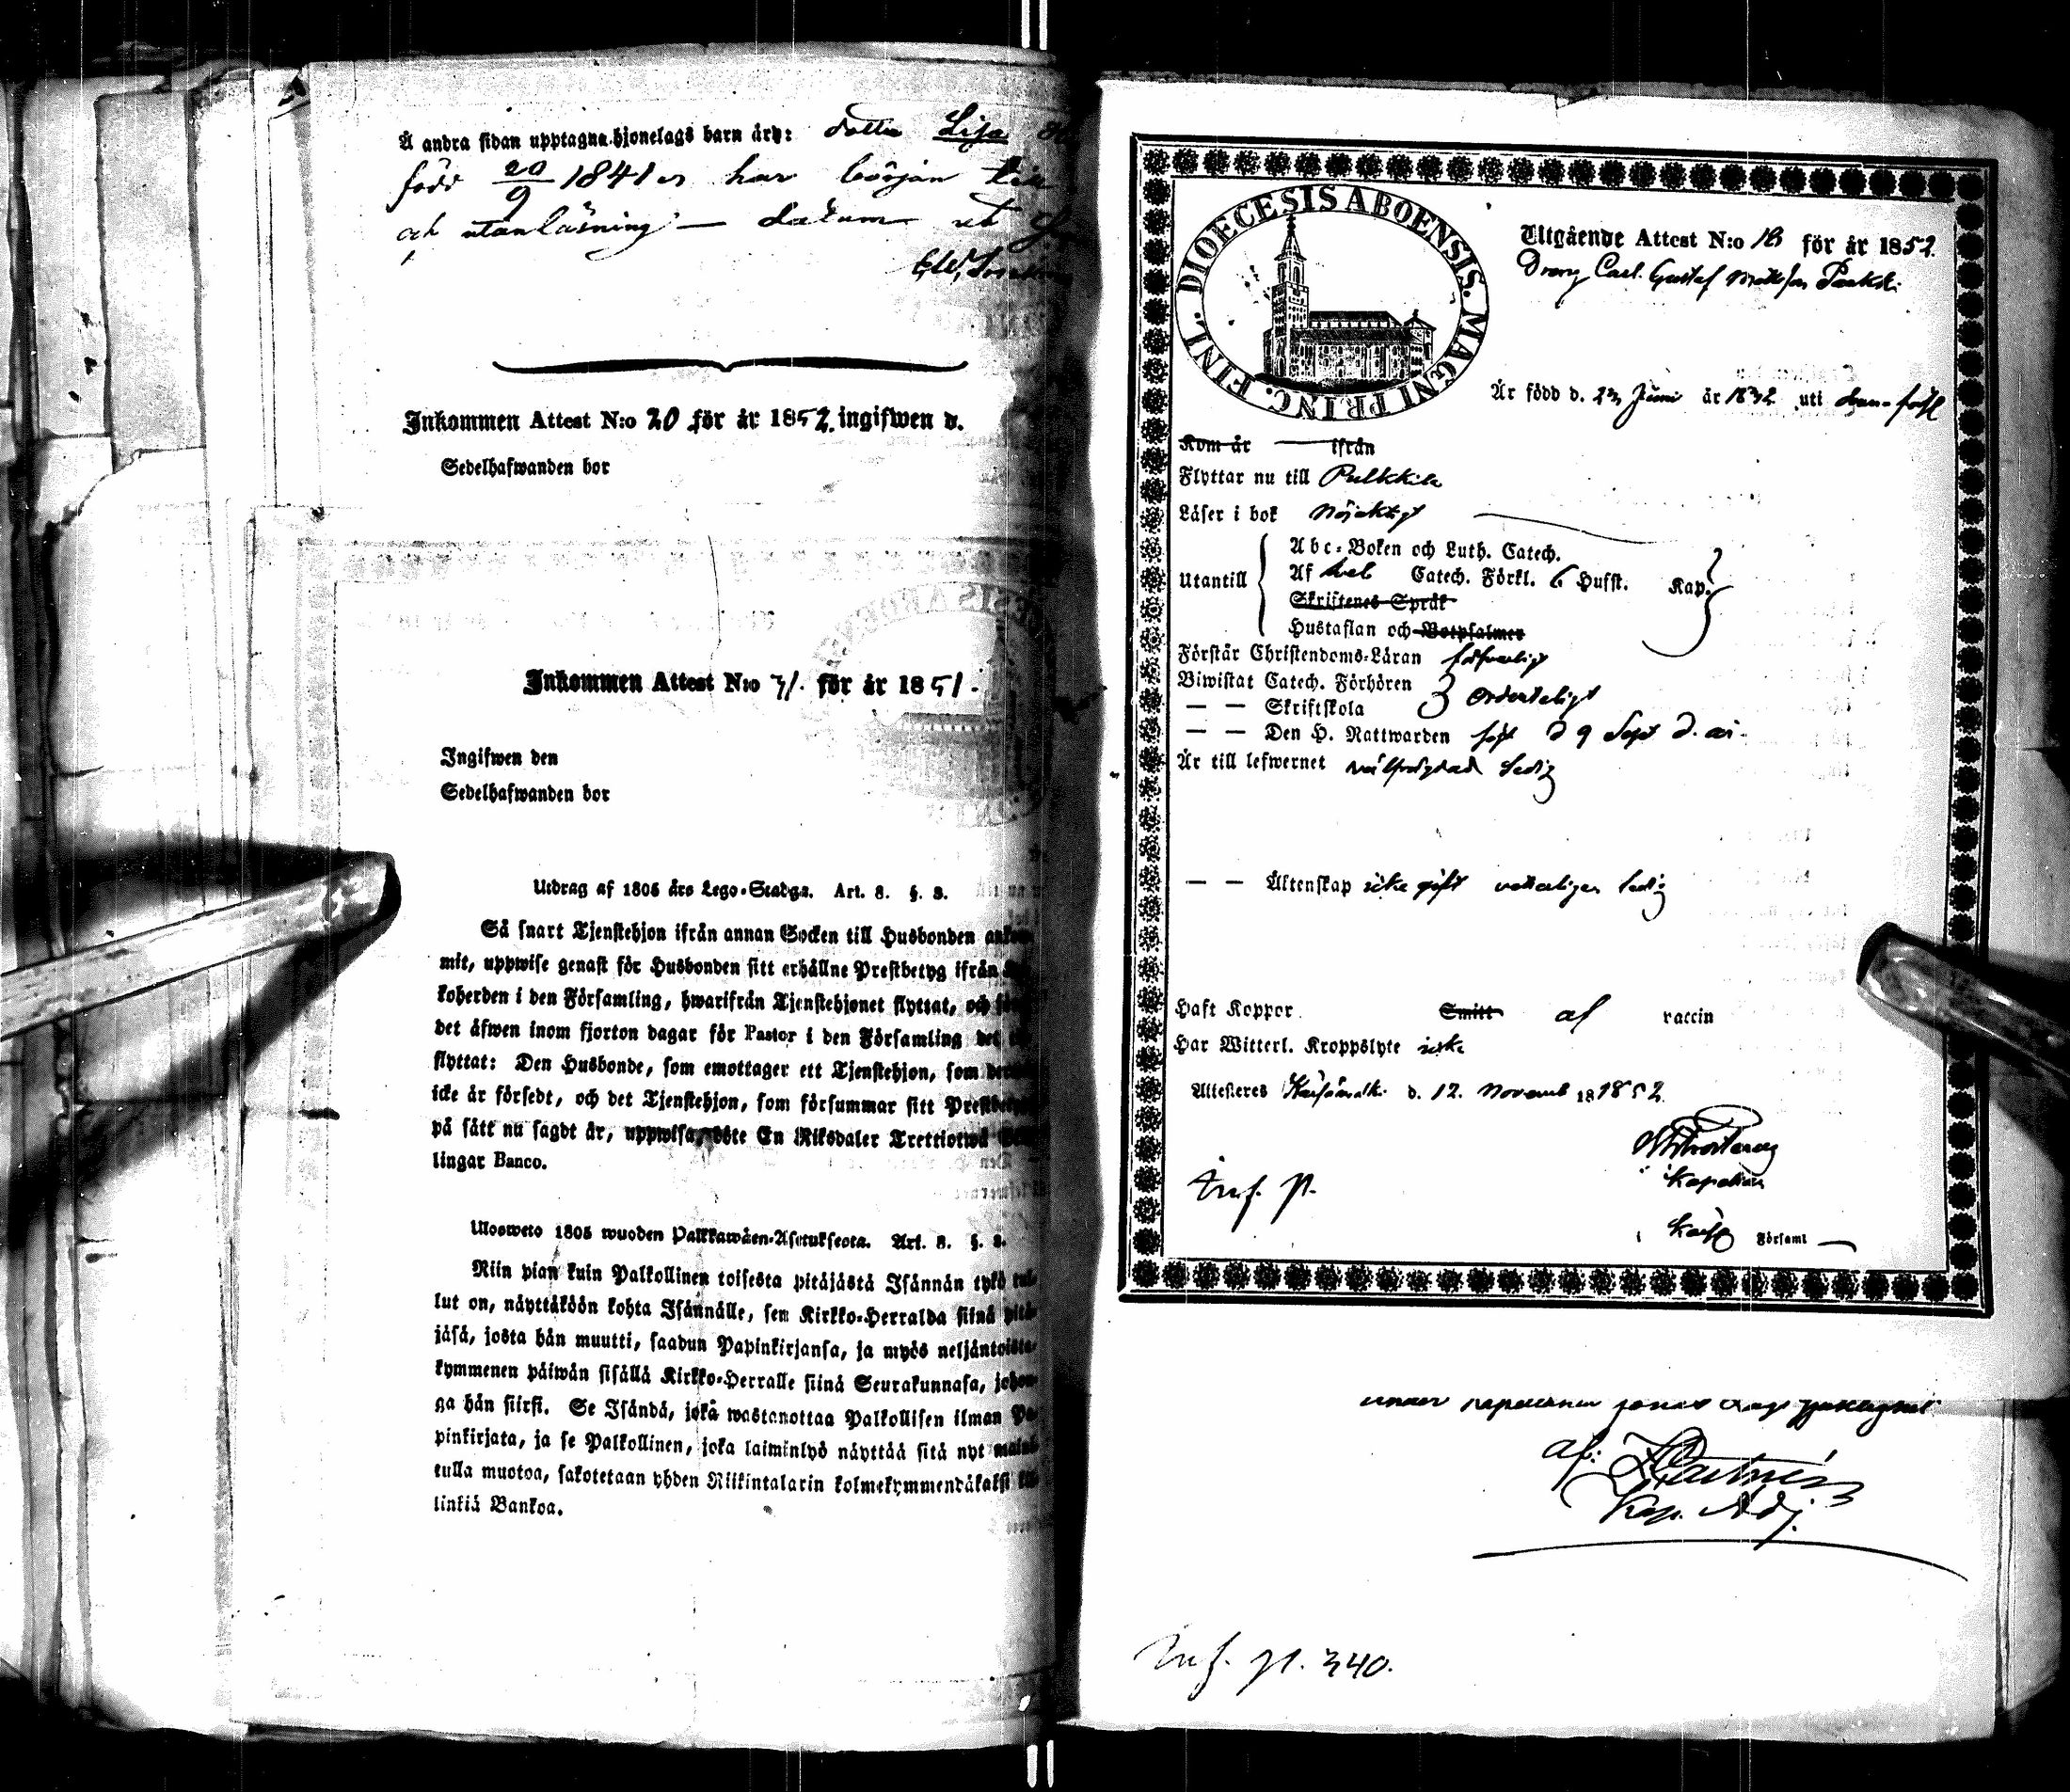 Å andra sidan upptagna hjonelags barn äro: dotter Lisa
född 20/9 1841 har början
och utanläsning — datum ut
Inkommen Attest N:o 20 för år 1852. ingifwen d.
Sedelhafwanden bor
Inkommen Attest N:o 31. för år 1851.
Ingifwen den
Sedelhafwanden bor
Utdrag af 1805 års Lego-Stadga. Art. 8. §. 3.
Så snart Tjenstehjon ifrån annan Socken till Husbonden
mit, uppwise genast för Husbonden sitt erhållne Prestbetyg ifrån
koherden i den Församling, hwarifrån Tjenstehjonet flyttat, och
det äfwen inom fjorton dagar för Pastor i den Församling det
flyttat: Den Husbonde, som emottager ett Tjenstehjon, som
icke är försedt, och det Tjenstehjon, som försummar sitt
på sätt nu sagdt är, uppwisa, böte En Riksdaler Trettiotwå
lingar Banco.
Ulosweto 1805 wuoden Palkkawäen-Asetuksesta. Art. 8. §. 3.
Niin pian kuin Palkollinen toisesta pitäjästä Isännän tykö tul-
lut on, näyttäköön kohta Isännälle, sen Kirkko-Herralda siinä pitä-
jäsä, josta hän muutti, saadun Papinkirjansa, ja myös neljäntoista-
kymmenen päiwän sisällä Kirkko-Herralle siinä Seurakunnasa, johon-
ga hän siirsi. Se Isändä, joka wastanottaa Palkollisen ilman Pa-
pinkirjata, ja se Palkollinen, joka laiminlyö näyttää sitä nyt mainit-
tulla muotoa, sakotetaan yhden Riikintalarin kolmekymmendäkaksi kil-
linkiä Bankoa.
DIOECESIS ABOENSIS. MAGNI PRINC. FINL.
Utgående Attest N:o 18 för år 1852.
Dreng Carl Gustaf
Är född d. 23 Juni år 1832 uti
Kom år ifrån
Flyttar nu till Pulkkila
Läser i bok nöjaktigt
Utantill
Abc-Boken och Luth. Catech.
Af hel Catech. Förkl. 6 Hufst. Kap.
Skriftenes Språk
Hustaflan och Botpsalmer
Förstår Christendoms-Läran försvarligt
Biwistat Catech. Förhören
— — Skriftskola ordenteligt
— — Den H. Nattwarden sist d 9 Sept d. år.
Är till lefwernet välfrägdad ledig
— — Äktenskap icke gift ledig
Haft Koppor Smitt af vaccin
Har Witterl. Kroppslyte icke
Attesteres d. 12. Novemb 18 1852
Inf. p.
Kapellan
Församl
af:
Kap. Adj.
Inf. p. 340.